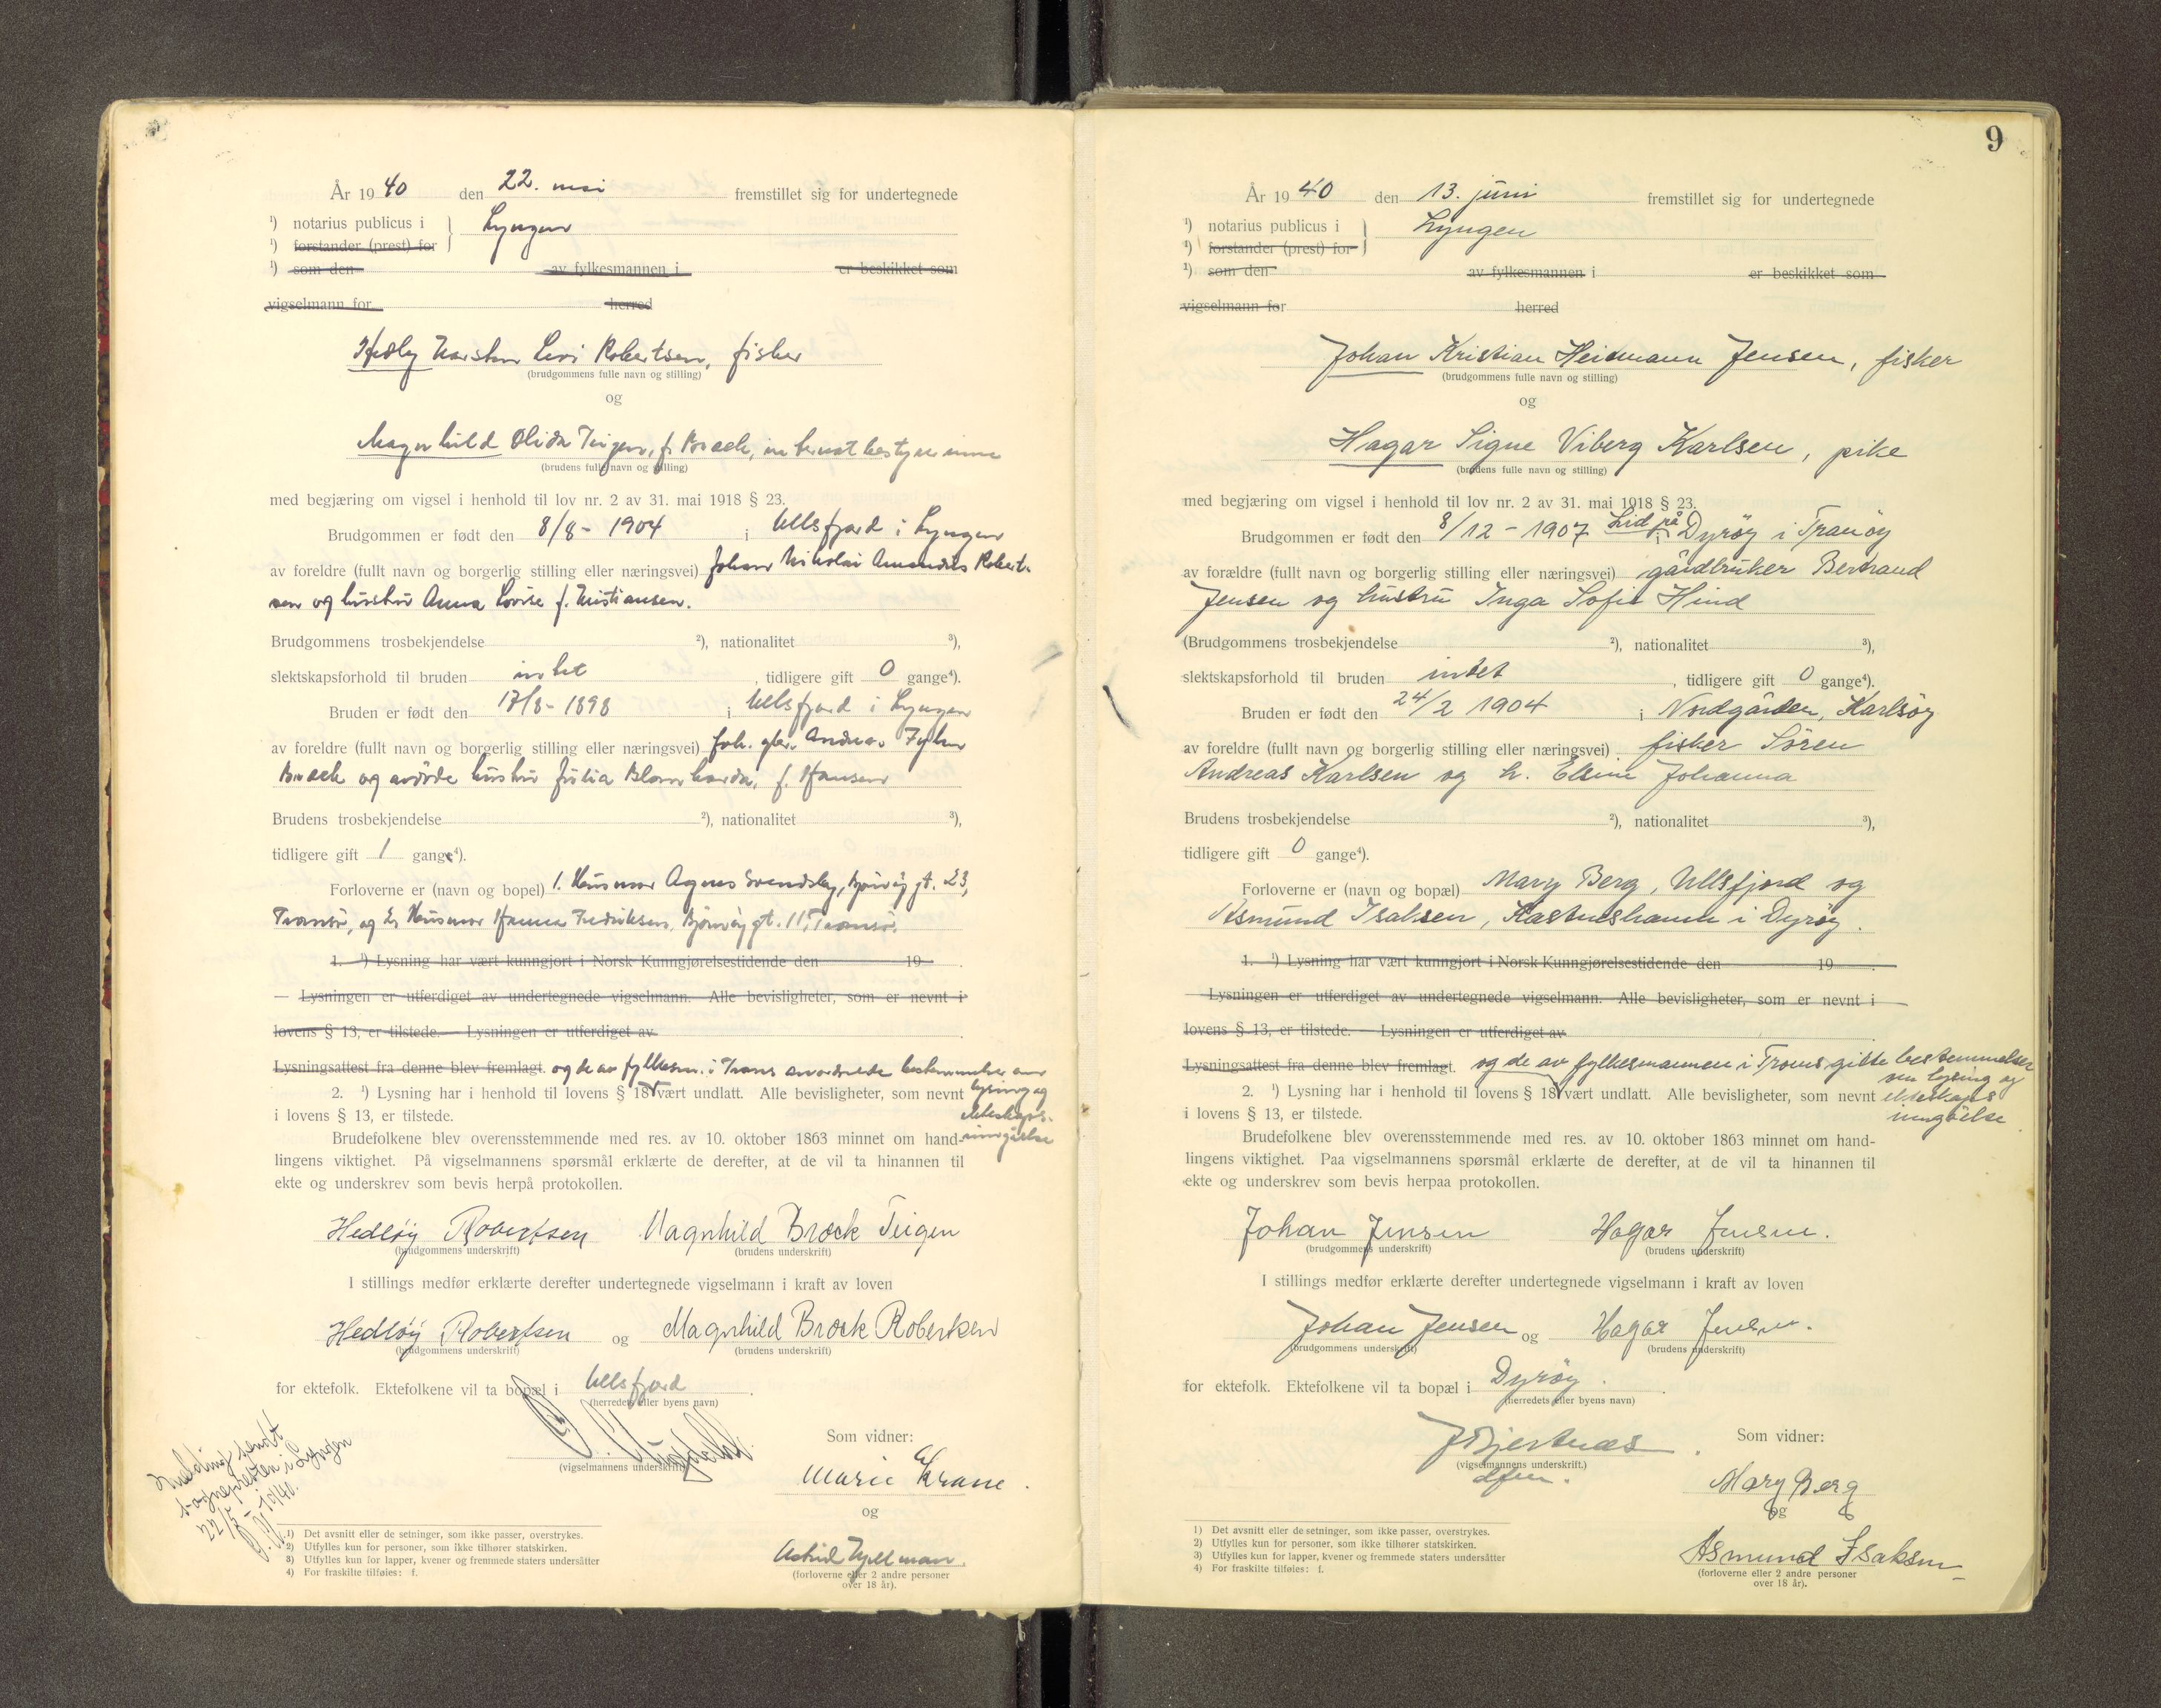 År 1940 den 22. mai fremstillet sig for undertegnede
¹) notarius publicus i } Lyngen
¹) forstander (prest) for
¹) som den av fylkesmannen i er beskikket som
vigselmann for herred
Levi Robertsen, fisker
(brudgommens fulle navn og stilling)
og
Magnhild Teigen, f.
(brudens fulle navn og stilling)
med begjæring om vigsel i henhold til lov nr. 2 av 31. mai 1918 § 23.
Brudgommen er født den 8/8 - 1904 i Ullsfjord i Lyngen
av foreldre (fullt navn og borgerlig stilling eller næringsvei) Johan Nikolai Robert-
sen og hustru Anna Lovise f. Kristiansen.
Brudgommens trosbekjendelse ²), nationalitet ³),
slektskapsforhold til bruden intet , tidligere gift 0 gange⁴).
Bruden er født den 17/8 - 1898 i Ullsfjord i Lyngen
av foreldre (fullt navn og borgerlig stilling eller næringsvei) Andreas
og avdøde hustru Julia f. Hansen
Brudens trosbekjendelse ²), nationalitet ³),
tidligere gift 1 gange⁴).
Forloverne er (navn og bopel) 1. Husmor Agnes gt. 23,
Tromsø, og 2. Husmor Hanna Fredriksen, gt. 11, Tromsø.
1. ¹) Lysning har vært kunngjort i Norsk Kunngjørelsestidende den 19 .
— Lysningen er utferdiget av undertegnede vigselmann. Alle bevisligheter, som er nevnt i
lovens § 13, er tilstede. — Lysningen er utferdiget av .
Lysningsattest fra denne blev fremlagt. og de av fylkesm. i Troms bestemmelser om
2. ¹) Lysning har i henhold til lovens § 18 vært undlatt. Alle bevisligheter, som nevnt lysning og
i lovens § 13, er tilstede. ekteskaps-
Brudefolkene blev overensstemmende med res. av 10. oktober 1863 minnet om hand- inngåelse
lingens viktighet. På vigselmannens spørsmål erklærte de derefter, at de vil ta hinannen til
ekte og underskrev som bevis herpå protokollen.
Hedløy Robertsen Magnhild Bræck Teigen
(brudgommens underskrift) (brudens underskrift)
I stillings medfør erklærte derefter undertegnede vigselmann i kraft av loven
Hedløy Robertsen og Magnhild Bræck Robertsen
(brudgommens underskrift) (brudens underskrift)
for ektefolk. Ektefolkene vil ta bopæl i Ullsfjord .
(herredets eller byens navn)
Som vidner:
(vigselmannens underskrift)
Marie Krane.
og
Astrid
(forloverne eller 2 andre personer
over 18 år).
Melding sendt
sognepresten i Lyngen
22/5 - 1940.
¹) Det avsnitt eller de setninger, som ikke passer, overstrykes.
²) Utfylles kun for personer, som ikke tilhører statskirken.
3) Utfylles kun for lapper, kvener og fremmede staters undersåtter
4) For fraskilte tilføies: f.
9
År 1940 den 13. juni fremstillet sig for undertegnede
¹) notarius publicus i } Lyngen
¹) forstander (prest) for
¹) som den av fylkesmannen i er beskikket som
vigselmann for herred
Johan Kristian Heidmann Jensen, fisker
(brudgommens fulle navn og stilling)
og
Hagar Signe Viberg Karlsen, pike
(brudens fulle navn og stilling)
med begjæring om vigsel i henhold til lov nr. 2 av 31. mai 1918 § 23.
Brudgommen er født den 8/12 - 1907 i på Dyrøy i Tranøy
av forældre (fullt navn og borgerlig stilling eller næringsvei) gårdbruker Bertrand
Jensen og hustru Inga Sofie Hind
(Brudgommens trosbekjendelse ²), nationalitet ³),
slektskapsforhold til bruden intet , tidligere gift 0 gange⁴).
Bruden er født den 24/2 1904 i Nordgården, Karlsøy
av foreldre (fullt navn og borgerlig stilling eller næringsvei) fisker Sören
Andreas Karlsen og h. Elsine Johanna
Brudens trosbekjendelse ²), nationalitet ³),
tidligere gift 0 gange⁴).
Forloverne er (navn og bopæl) Mary Berg, Ullsfjord og
Asmund Isaksen, Kastneshamn i Dyrøy.
1. ¹) Lysning har vært kunngjort i Norsk Kunngjørelsestidende den 19 .
— Lysningen er utferdiget av undertegnede vigselmann. Alle bevisligheter, som er nevnt i
lovens § 13, er tilstede. — Lysningen er utferdiget av
Lysningsattest fra denne blev fremlagt. og de av fylkesmannen i Troms gitte bestemmelser
om lysing og
2. ¹) Lysning har i henhold til lovens § 18 vært undlatt. Alle bevisligheter, som nevnt ekteskaps
i lovens § 13, er tilstede. inngåelse.
Brudefolkene blev overensstemmende med res. av 10. oktober 1863 minnet om hand-
lingens viktighet. Paa vigselmannens spørsmål erklærte de derefter, at de vil ta hinannen til
ekte og underskrev som bevis herpaa protokollen.
Johan Jensen Hagar Jensen.
(brudgommens underskrift) (brudens underskrift)
I stillings medfør erklærte derefter undertegnede vigselmann i kraft av loven
Johan Jensen og Hagar Jensen.
(brudgommens underskrift) (brudens underskrift)
for ektefolk. Ektefolkene vil ta bopæl i Dyrøy.
(herredets eller byens navn)
Som vidner:
(vigselmannens underskrift.)
Mary Berg
og
Asmund Isaksen
(forloverne eller 2 andre personer
over 18 år).
1) Det avsnitt eller de setninger, som ikke passer, overstrykes.
2) Utfylles kun for personer, som ikke tilhører statskirken.
3) Utfylles kun for lapper, kvener og fremmede staters undersåtter
4) For fraskilte tilføies: f.